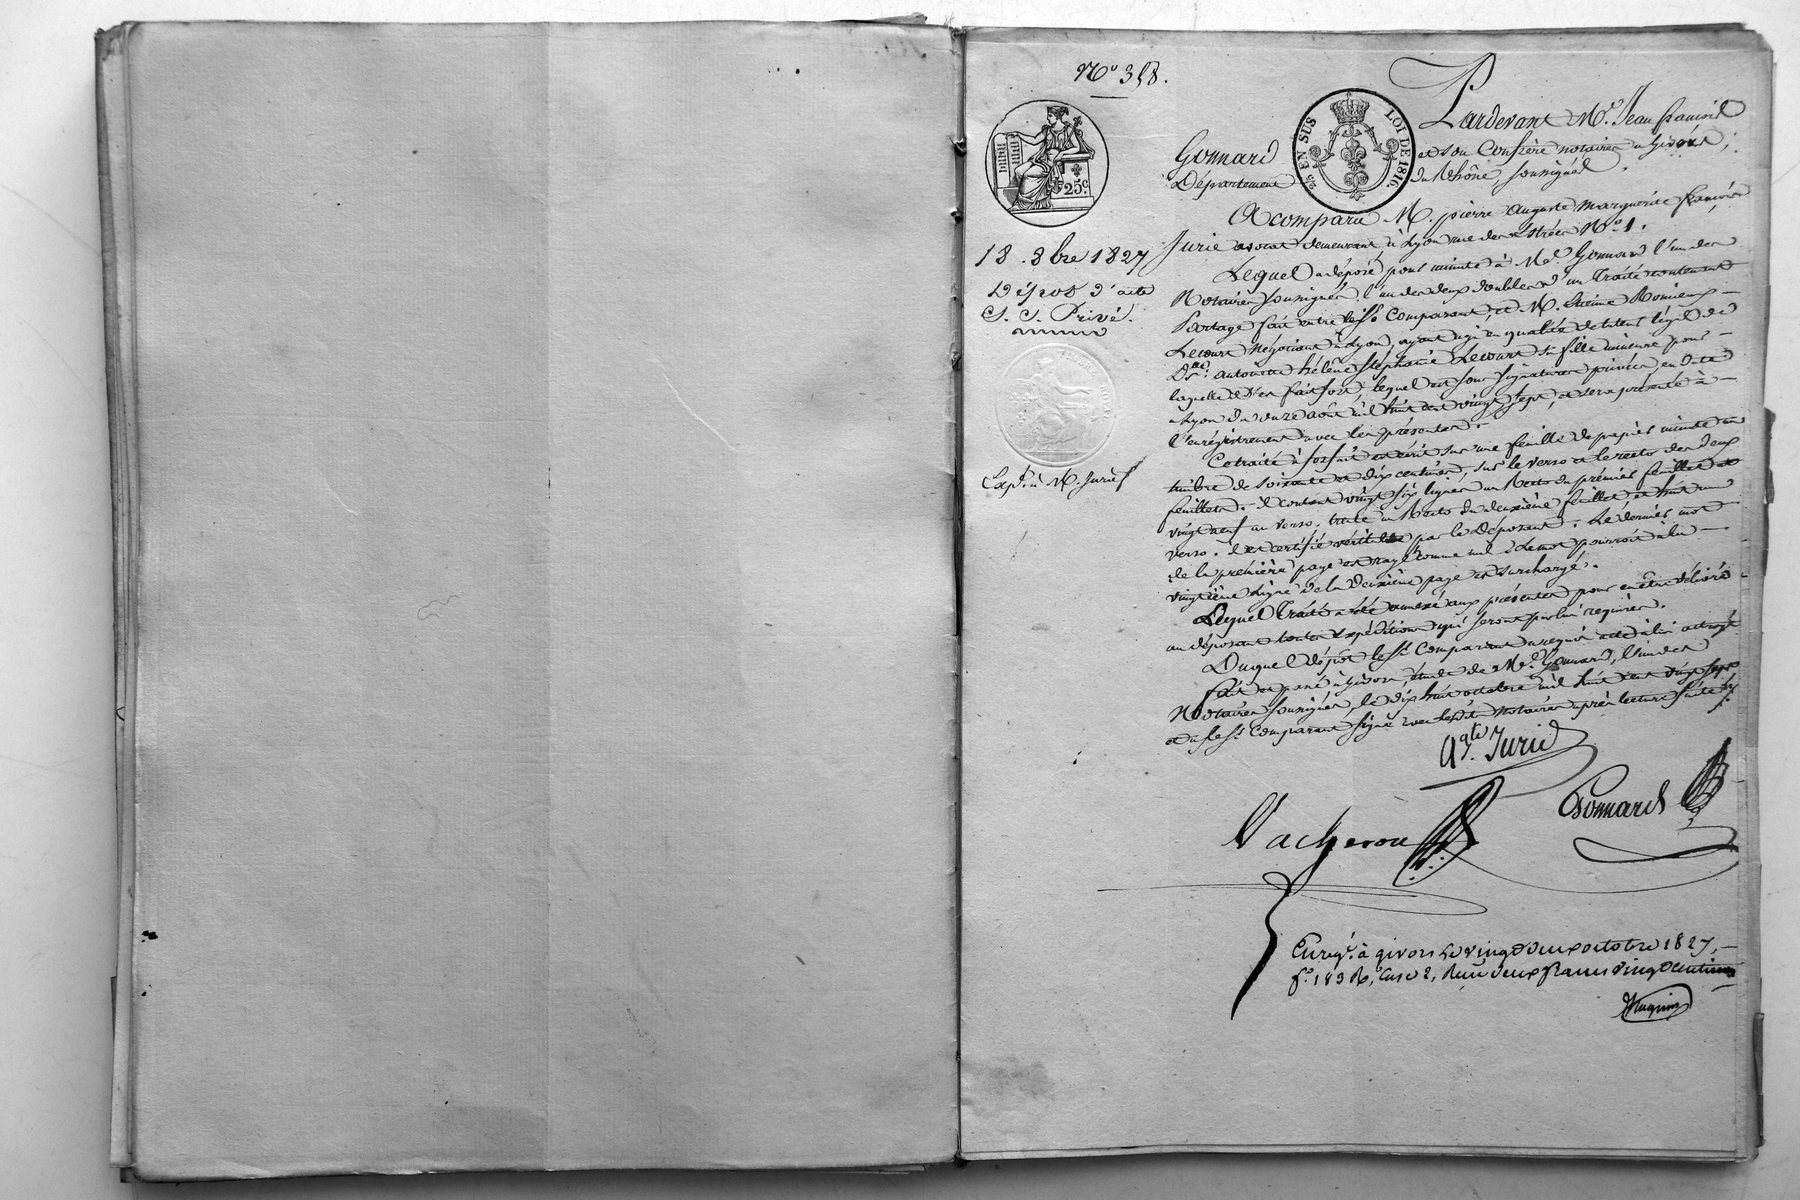 N.o 358.
2/5 EN SUS
LOI DE 1816.
25c.
18. 8bre 1827
Dépot d'acte
S. S. Privé.
Expé. à M. Jurie
Pardevant Me. Jean françois
Gonnard et son Confrère notaires à Givors,
Département du Rhône, soussignés.
A comparu M. pierre Auguste Marguerite françois
Jurie avocat demeurant à Lyon rue des No. 1.
Lequel a déposé pour minute à Me. Gonnard l'un des
Notaires soussignés, l'un des deux doubles d'un Traité contenant
Partage fait entre le sr. Comparant, et M. Etienne Romieux
Lecourt Négociant à Lyon, ayant agi en qualité de tuteur légal de
Dlle. antoinette hélène stéphanie Lecourt sa fille mineure pour
laquelle il s'est fait fort, lequel est sous signatures privées en date
à Lyon du onze août mil huit cent vingt sept, et sera présenté à
l'enrégistrement avec les présentes.
Ce traité à forfait est écrit sur une feuille de papier minute au
timbre de soixante et dix centimes, sur le verso et le recto des deux
feuillets. il contient vingt six lignes au Recto du premier feuillet et
vingt neuf au verso. trente au Recto du deuxième feuillet et huit au
verso. il est certifié véritable par le Déposant. Le dernier mot
de la première page est rayé comme nul & le mot pourroit à la
vingtième ligne de la deuxième page est surchargé.
Lequel Traité a été annexé aux présentes pour en être délivré
au déposant toutes Expéditions qui seront par lui requises.
Duquel dépôt le sr. Comparant a requis acte à lui octroyé
fait et passé à Givors, étude de Me. Gonnard, l'un des
Notaires soussignés, le dix huit octobre mil huit cent vingt sept
et a le sr. Comparant signé avec lesdits Notaires après lecture faite
Agte. Jurie
Gonnard
Vacheron
Enregé. à givors le vingt deux octobre 1827,
fo. 183 R, Case 2, Reçu deux francs vingt centimes